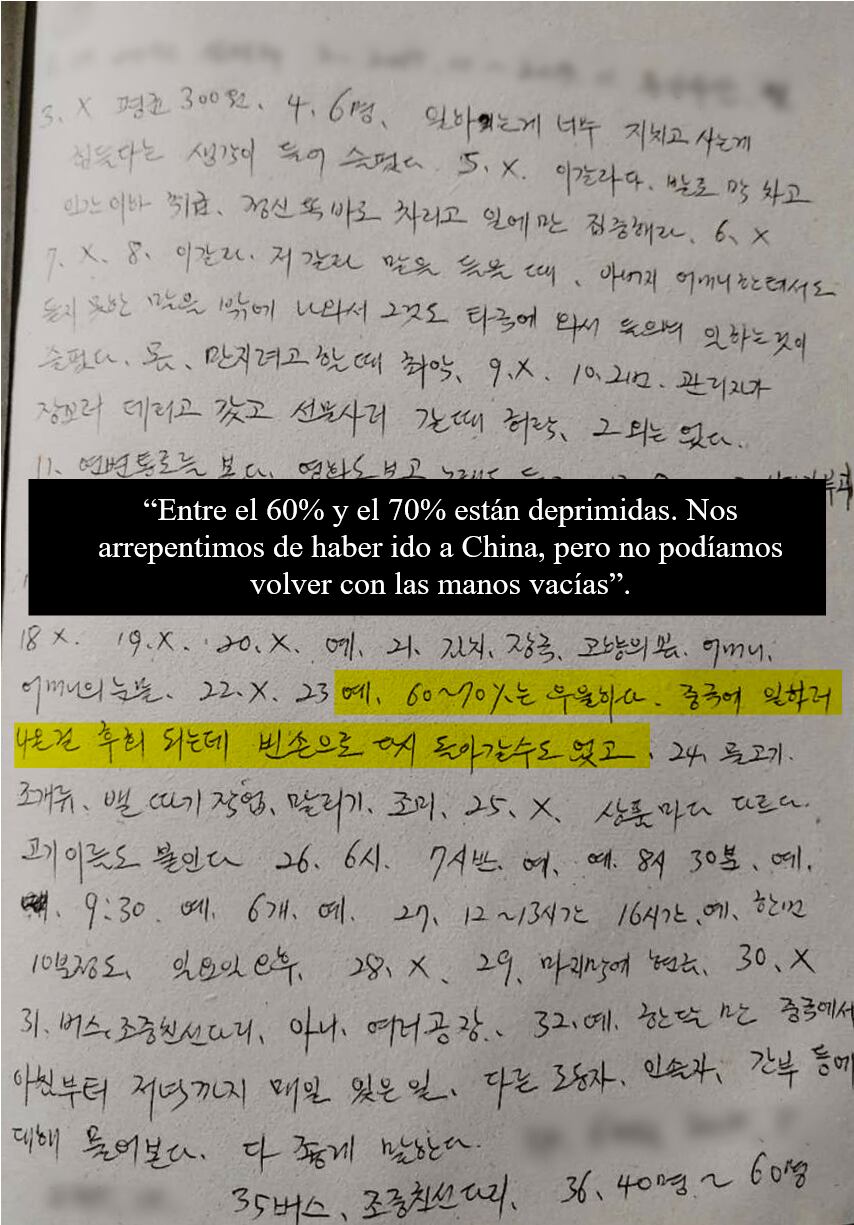 3. X 평균 300원. 4. 6명. 일하는게 너무 지치고 사는게
힘들다는 생각이 들어 슬펐다. 5. X. 이갈라다. 발로 막 차고
인간이하 취급. 정신 똑바로 차리고 일에만 집중해라. 6. X
7. X. 8. 이갈라. 저갈라 말을 들을 때, 아버지 어머니한테서도
듣지 못한 말을 밖에 나와서 그것도 타국에 와서 들으며 일하는것이
슬펐다. 몸, 만지려고 할때 최악. 9. X. 10. 2번. 관리자가
장보러 데리고 갔고 선물사러 갈때 허락. 그 외는 없다.
11. 연변통로를 본다. 영화도 보고
“Entre el 60% y el 70% están deprimidas. Nos
arrepentimos de haber ido a China, pero no podíamos
volver con las manos vacías”.
18 X. 19. X. 20. X. 예. 21. 김치, 장국, 고향의 봄. 어머니.
어머니의 눈물. 22. X. 23 예. 60~70%는 우울하다. 중국에 일하러
나온걸 후회 되는데 빈손으로 다시 돌아갈수도 없고. 24. 물고기.
조개류, 밸 따기 작업, 말리기, 조미. 25. X. 상품마다 다르다.
고기이름도 붙인다 26. 6시. 7시반. 예. 예. 8시 30분. 예.
9:30. 예. 6개. 예. 27. 12~13시간 16시간. 예. 한번
10분정도. 일요일 오후. 28. X. 29. 마지막에 현금. 30. X
31. 버스. 조중친선다리. 아니. 여러공장. 32. 예. 한달 번 중국에서
아침부터 저녁까지 매일 있은 일. 다른 로동자. 인솔자. 간부 등에
대해 물어본다. 다 좋게 말한다.
35 버스. 조중친선다리. 36. 40명 ~ 60명